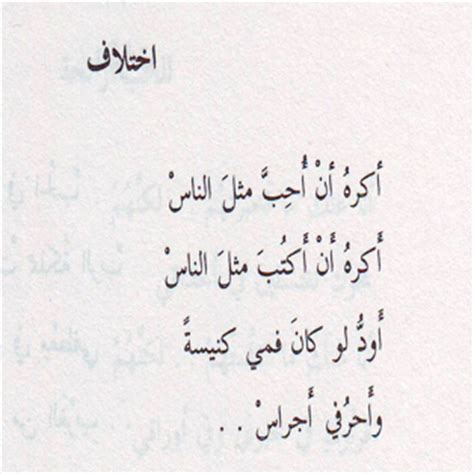 اختلاف
أكرهُ أنْ أُحِبَّ مثلَ الناسْ
أَكرهُ أَنْ أَكتُبَ مثلَ الناسْ
أَودُّ لو كانَ فمي كنيسةً
وأَحرُفي أَجراسْ . .